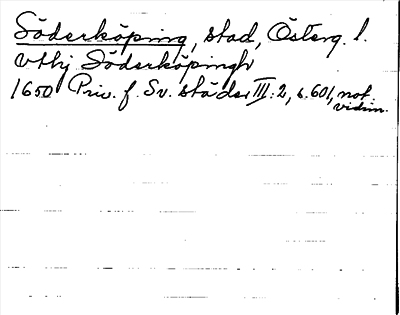 Söderköping, stad, Österg. l.
vthj Söderköpingh
1650 Priv. f. Sv. städer III:2, s. 601, not.
vidim.